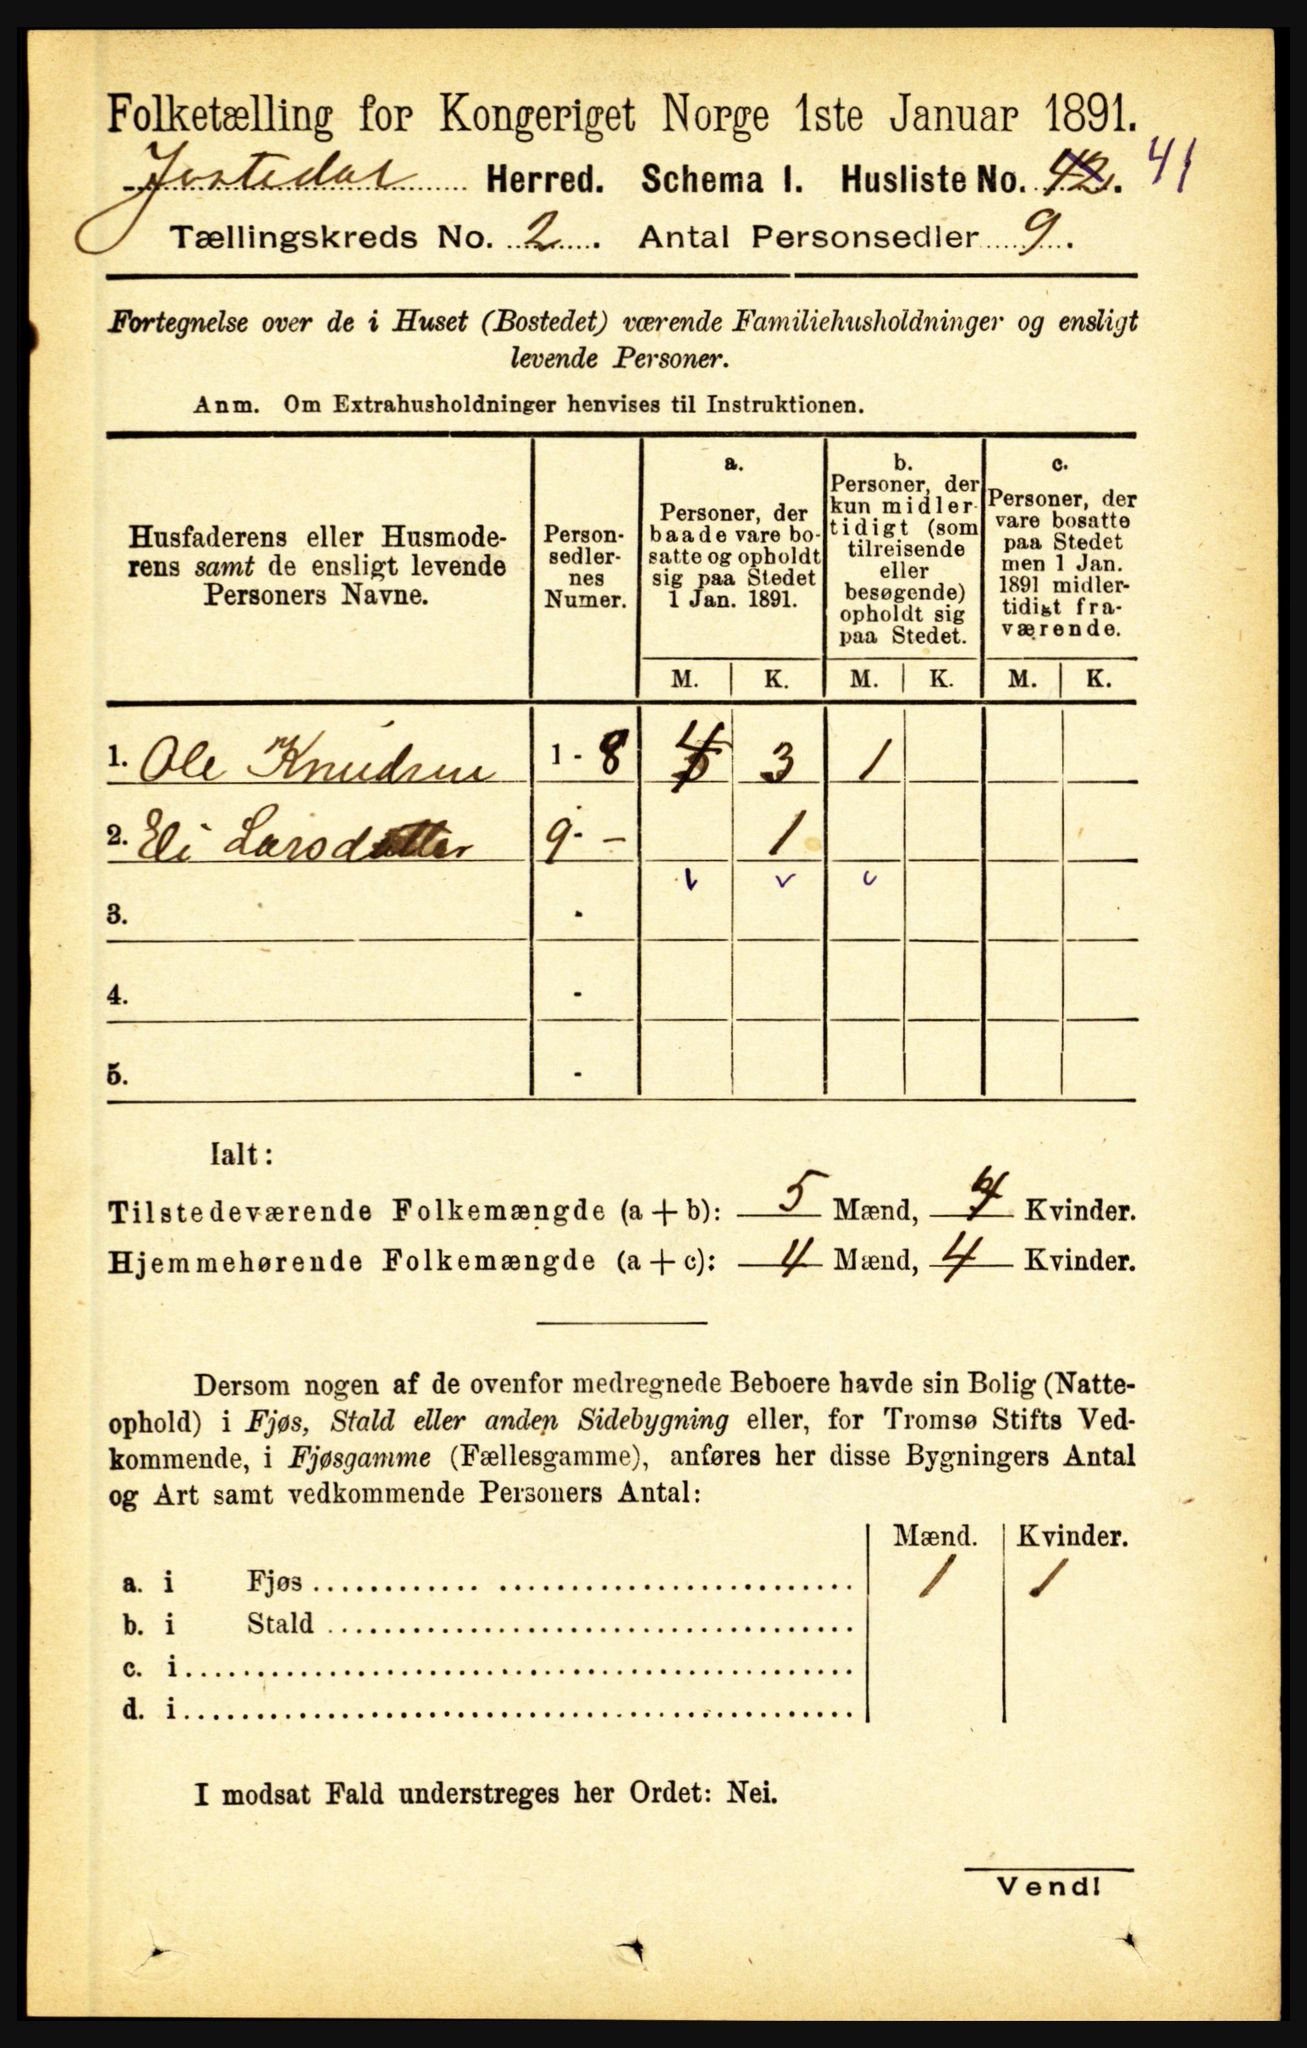 Folketælling for Kongeriget Norge 1ste Januar 1891.
Jostedal Herred. Schema I. Husliste No. 42. 41
Tællingskreds No. 2. Antal Personsedler 9.
Fortegnelse over de i Huset (Bostedet) værende Familiehusholdninger og ensligt
levende Personer.
Anm. Om Extrahusholdninger henvises til Instruktionen.
Husfaderens eller Husmode-
rens samt de ensligt levende
Personers Navne.
Person-
sedler-
nes
Numer.
a.
Personer, der
baade vare bo-
satte og opholdt
sig paa Stedet
1 Jan. 1891.
b.
Personer, der
kun midler-
tidigt (som
tilreisende
eller
besøgende)
opholdt sig
paa Stedet.
c.
Personer, der
vare bosatte
paa Stedet
men 1 Jan.
1891 midler-
tidigt fra-
værende.
M. K. M. K. M. K.
1. Ole Knudsen 1 - 8 4 3 1
2. Eli Larsdatter 9 - 1
3. -
4. -
5. -
Ialt:
Tilstedeværende Folkemængde (a + b): 5 Mænd, 4 Kvinder.
Hjemmehørende Folkemængde (a + c): 4 Mænd, 4 Kvinder.
Dersom nogen af de ovenfor medregnede Beboere havde sin Bolig (Natte-
ophold) i Fjøs, Stald eller anden Sidebygning eller, for Tromsø Stifts Ved-
kommende, i Fjøsgamme (Fællesgamme), anføres her disse Bygningers Antal
og Art samt vedkommende Personers Antal:
Mænd. Kvinder.
a. i Fjøs 1 1
b. i Stald
c. i
d. i
I modsat Fald understreges her Ordet: Nei.
Vend!